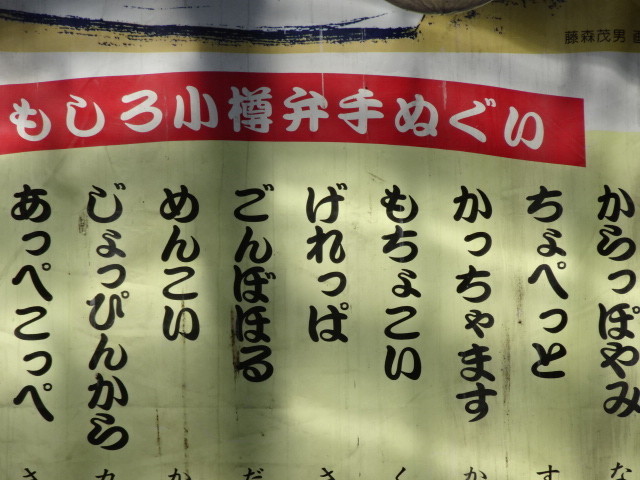 藤森茂男
もしろ小樽弁手ぬぐい
からっぽやみ
ちょぺっと
かっちゃます
もちょこい
げれっぱ
ごんぼほる
めんこい
じょっぴんから
あっぺこっぺ